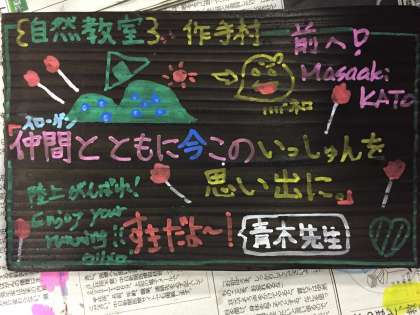 {自然教室} 作手村
前へ!
Masaaki
KATO
スローガン
『仲間とともに今このいっしゅんを
思い出に。』
陸上がんばれ!
Enjoy your
running!!
すきだよ〜!
{青木先生}